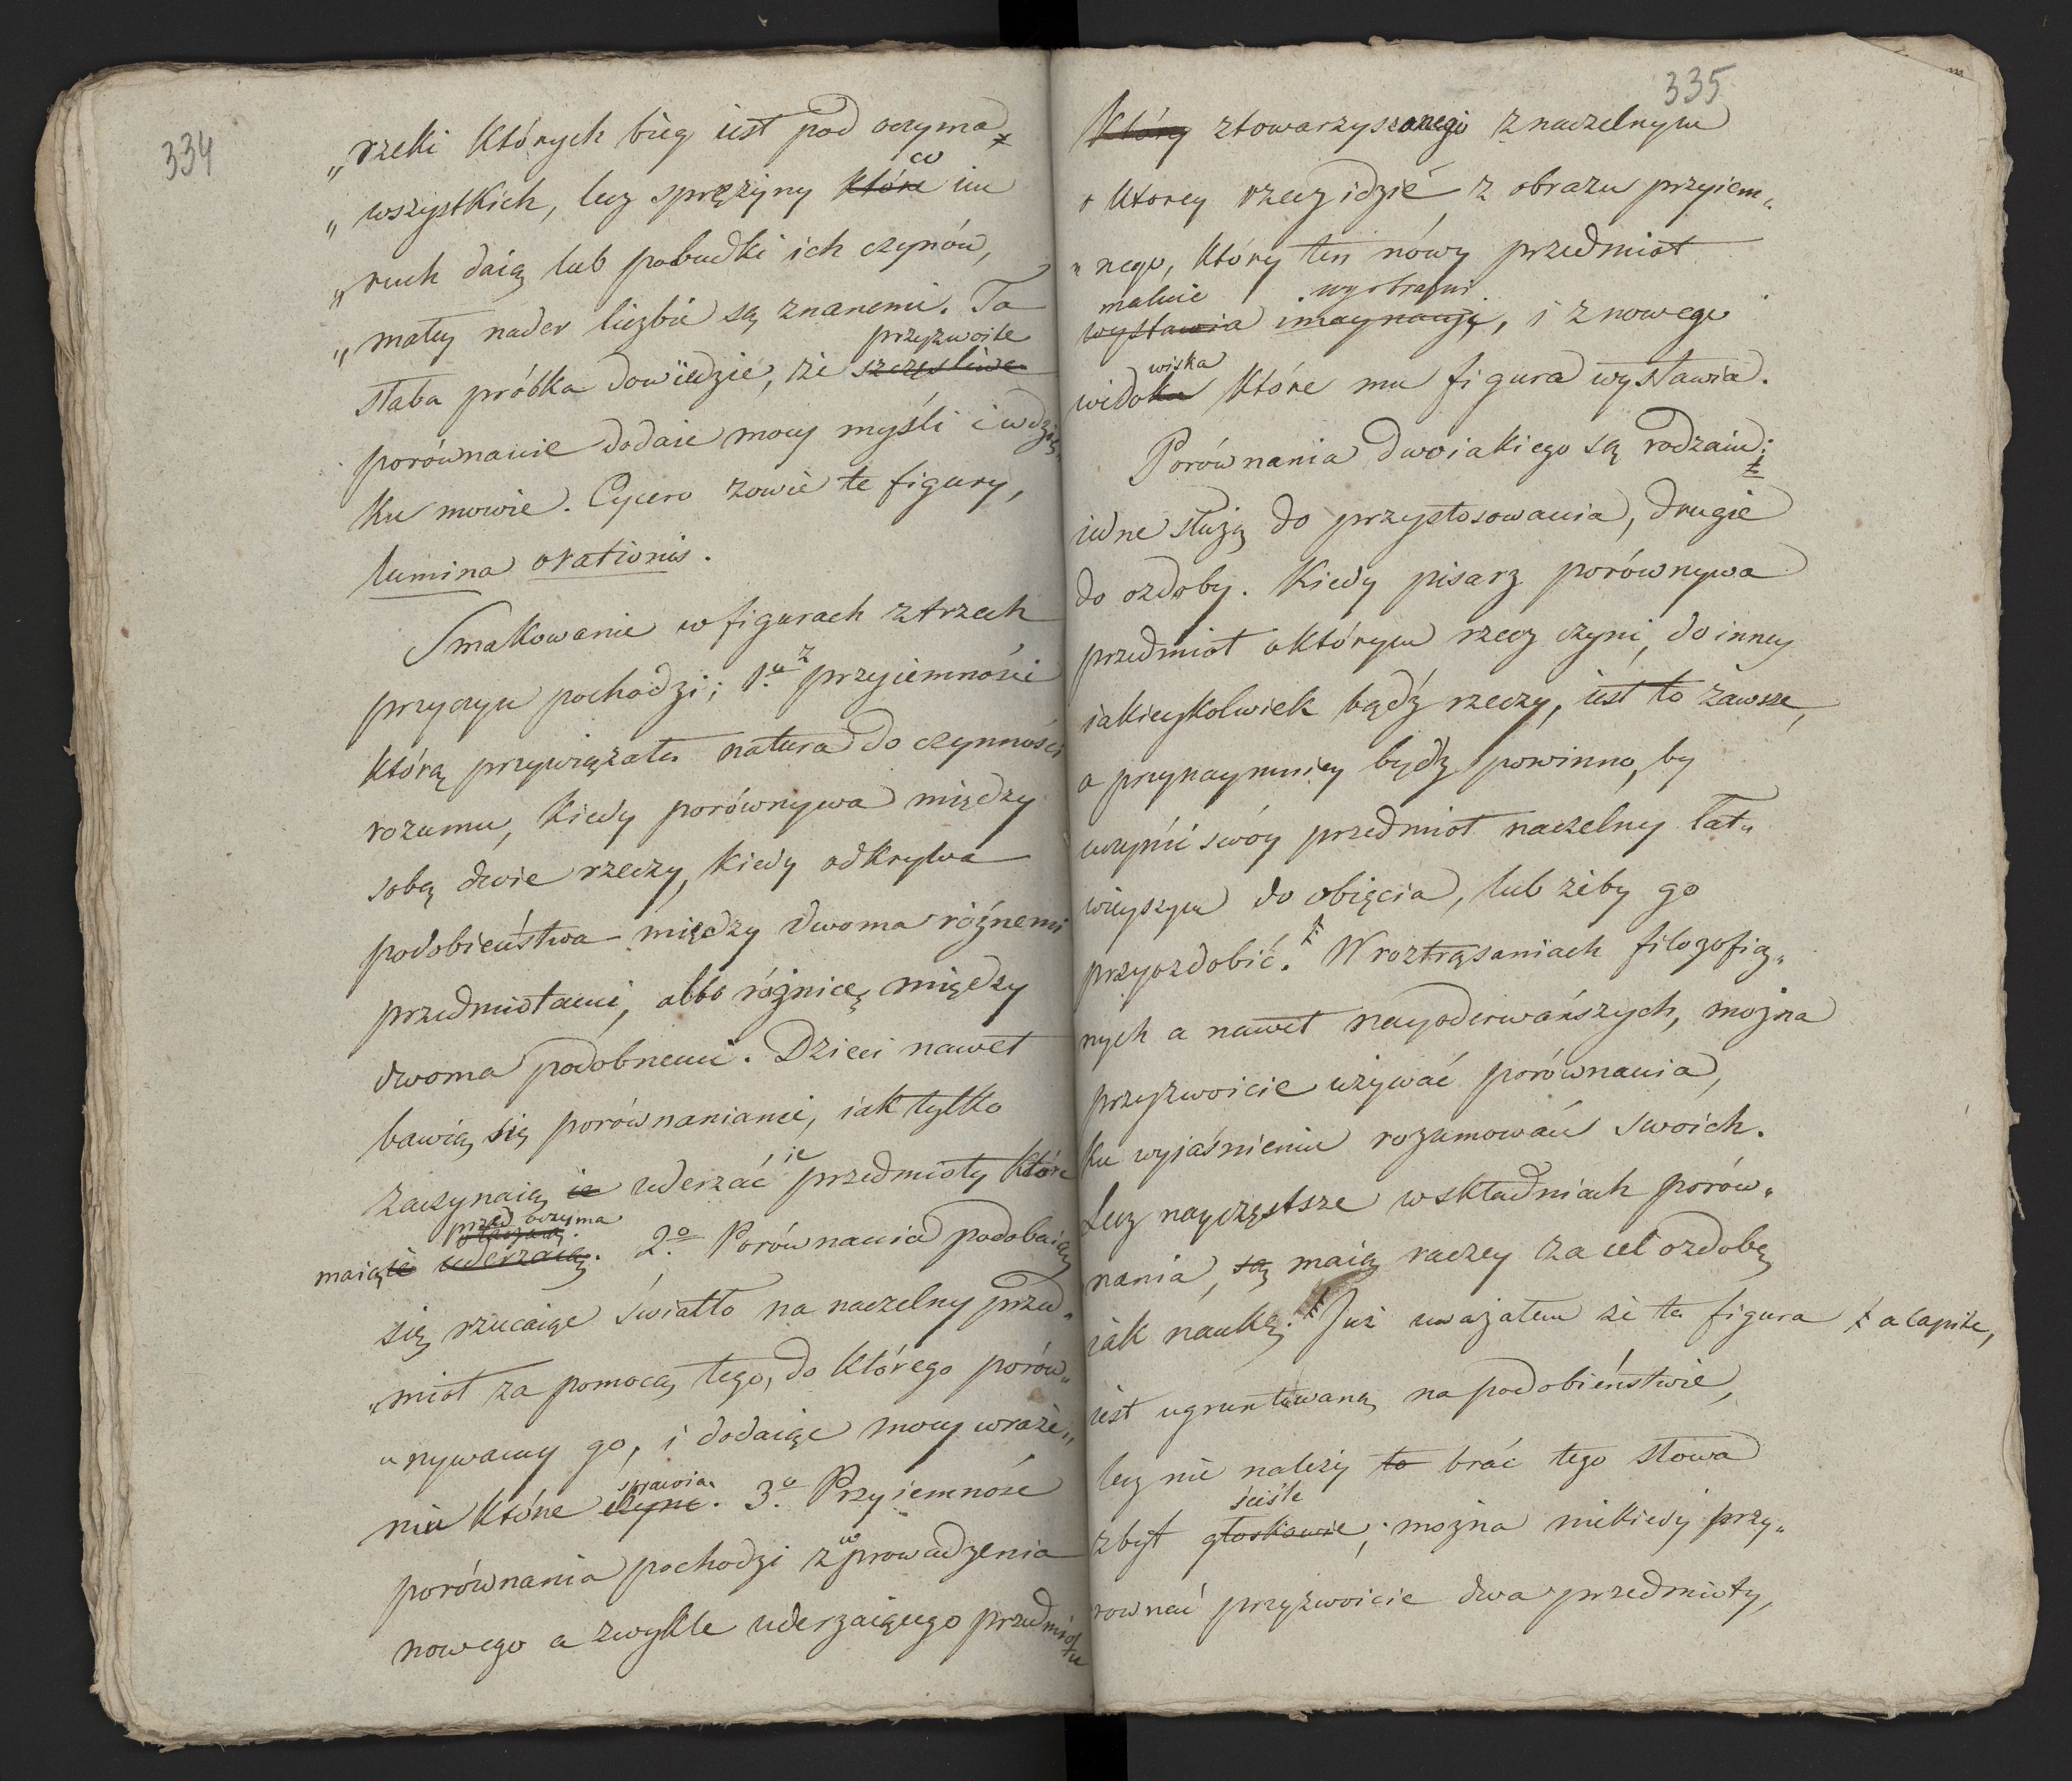 334
„rzeki których bieg iest pod oczyma
co
„wszystkich, lecz sprężyny które im
„ruch daią lub pobudki ich czynów,
„małey nader liczbie są znanemi. Ta
przyzwoite
słaba próbka dowiedzie, że szczęśliwe
porównanie dodaie mocy myśli i wdzię„
ku mowie. Cycero zowie te figury,
lumina orationis.
Smakowanie w figurach z trzech
przyczyn pochodzi; 1.o z przyiemności
którą przywiązała natura do czynności
rozumu, kiedy porównywa między
sobą dwie rzeczy, kiedy odkrywa
podobieństwa między dwoma różnemi
przedmiotami, albo różnicę między
dwoma podobnemi. Dzieci nawet
bawią się porównaniami, iak tylko
zaczynaią ie uderzać ie przedmioty które
przed oczyma
maią ie uderzaią. 2.o Porównania podobaią
się rzucaiąc światło na naczelny przed„
„miot za pomocą tego, do którego porów„
„nywamy go, i dodaiąc mocy wraże„
sprawia
niu które czyni. 3.o Przyiemność
porównania pochodzi z wprowadzenia
nowego a zwykle uderzaiącego przedmiotu
335
który ztowarzyszonego z naczelnym
o ktorey rzecz idzie z obrazu przyiem„
„nego, który ten nówy przedmiot
maluie wyobraźni
wystawia imaynacyi, i z nowego
wiska
widoku które mu figura wystawia.
Porównania dwoiakiego są rodzaiu:
iedne służą do przystosowania, drugie
do ozdoby. Kiedy pisarz porównywa
przedmiot o którym rzecz czyni, do inney
iakieykolwiek bądź rzeczy, iest to zawsze,
a przynaymniey bydź powinno, by
uczynić swóy przedmiot naczelny łat„
wieyszym do obięcia, lub żeby go
przyozdobić. W roztrząsaniach filozoficz„
nych a nawet nayoderwańszych, można
przyzwoicie używać porównania,
ku wyiaśnieniu rozumowań swoich.
Lecz nayczęstsze w składniach porów„
nania, są maią raczey za cel ozdobę
iak naukę. Już uważałem że ta figura ‡ a capite,
iest ugruntowaną na podobieństwie,
lecz nie należy to brać tego słowa
ściśle
zbyt głoskowie; można niekiedy przy„
rownać przyzwoicie dwa przedmioty,